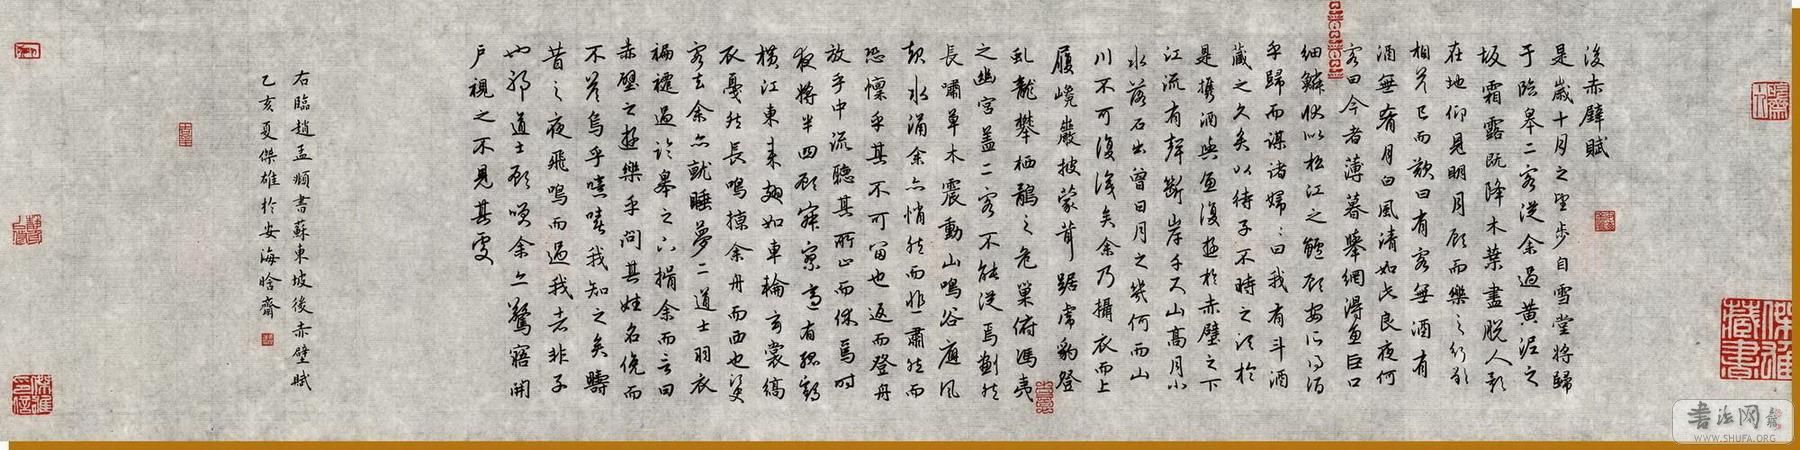 後赤壁賦
是歲十月之望步自雪堂將歸
于臨皋二客從余過黃泥之
坂霜露既降木葉盡脫人影
在地仰見明月顧而樂之行歌
相答已而歎曰有客無酒有
酒無肴月白風清如此良夜何
客曰今者薄暮舉網得魚巨口
細鱗狀似松江之鱸顧安所得酒
乎歸而謀諸婦婦曰我有斗酒
藏之久矣以待子不時之須於
是攜酒與魚復遊於赤壁之下
江流有聲斷岸千尺山高月小
水落石出曾日月之幾何而山
川不可復識矣余乃攝衣而上
履巉巖披蒙茸踞虎豹登
虬龍攀栖鶻之危巢俯馮夷
之幽宮蓋二客不能從焉劃然
長嘯草木震動山鳴谷應風
起水涌余亦悄然而悲肅然而
恐懍乎其不可留也返而登舟
放乎中流聽其所止而休焉時
夜將半四顧寂寥適有孤鶴
橫江東來翅如車輪玄裳縞
衣戛然長鳴掠余舟而西也須臾
客去余亦就睡夢二道士羽衣
褊褼過臨皋之下揖余而言曰
赤壁之遊樂乎問其姓名俛而
不答烏乎噫嘻我知之矣疇
昔之夜飛鳴而過我者非子
也耶道士顧笑余亦驚寤開
戶視之不見其處
右臨趙孟頫書蘇東坡後赤壁賦
乙亥夏傑雄於安海晗齋
傑雄藏書
書法网
WWW.SHUFA.ORG